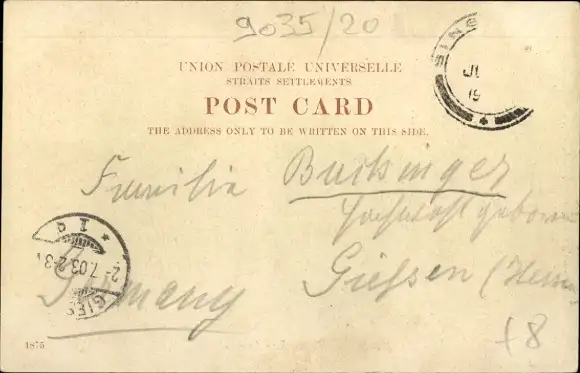 9035/20
UNION POSTALE UNIVERSELLE
STRAITS SETTLEMENTS
POST CARD
THE ADDRESS ONLY TO BE WRITTEN ON THIS SIDE.
SING
JU
19
Familie Buchsinger
Giessen (Hessen
Germany
GIES
2-7.03.2-3
1875